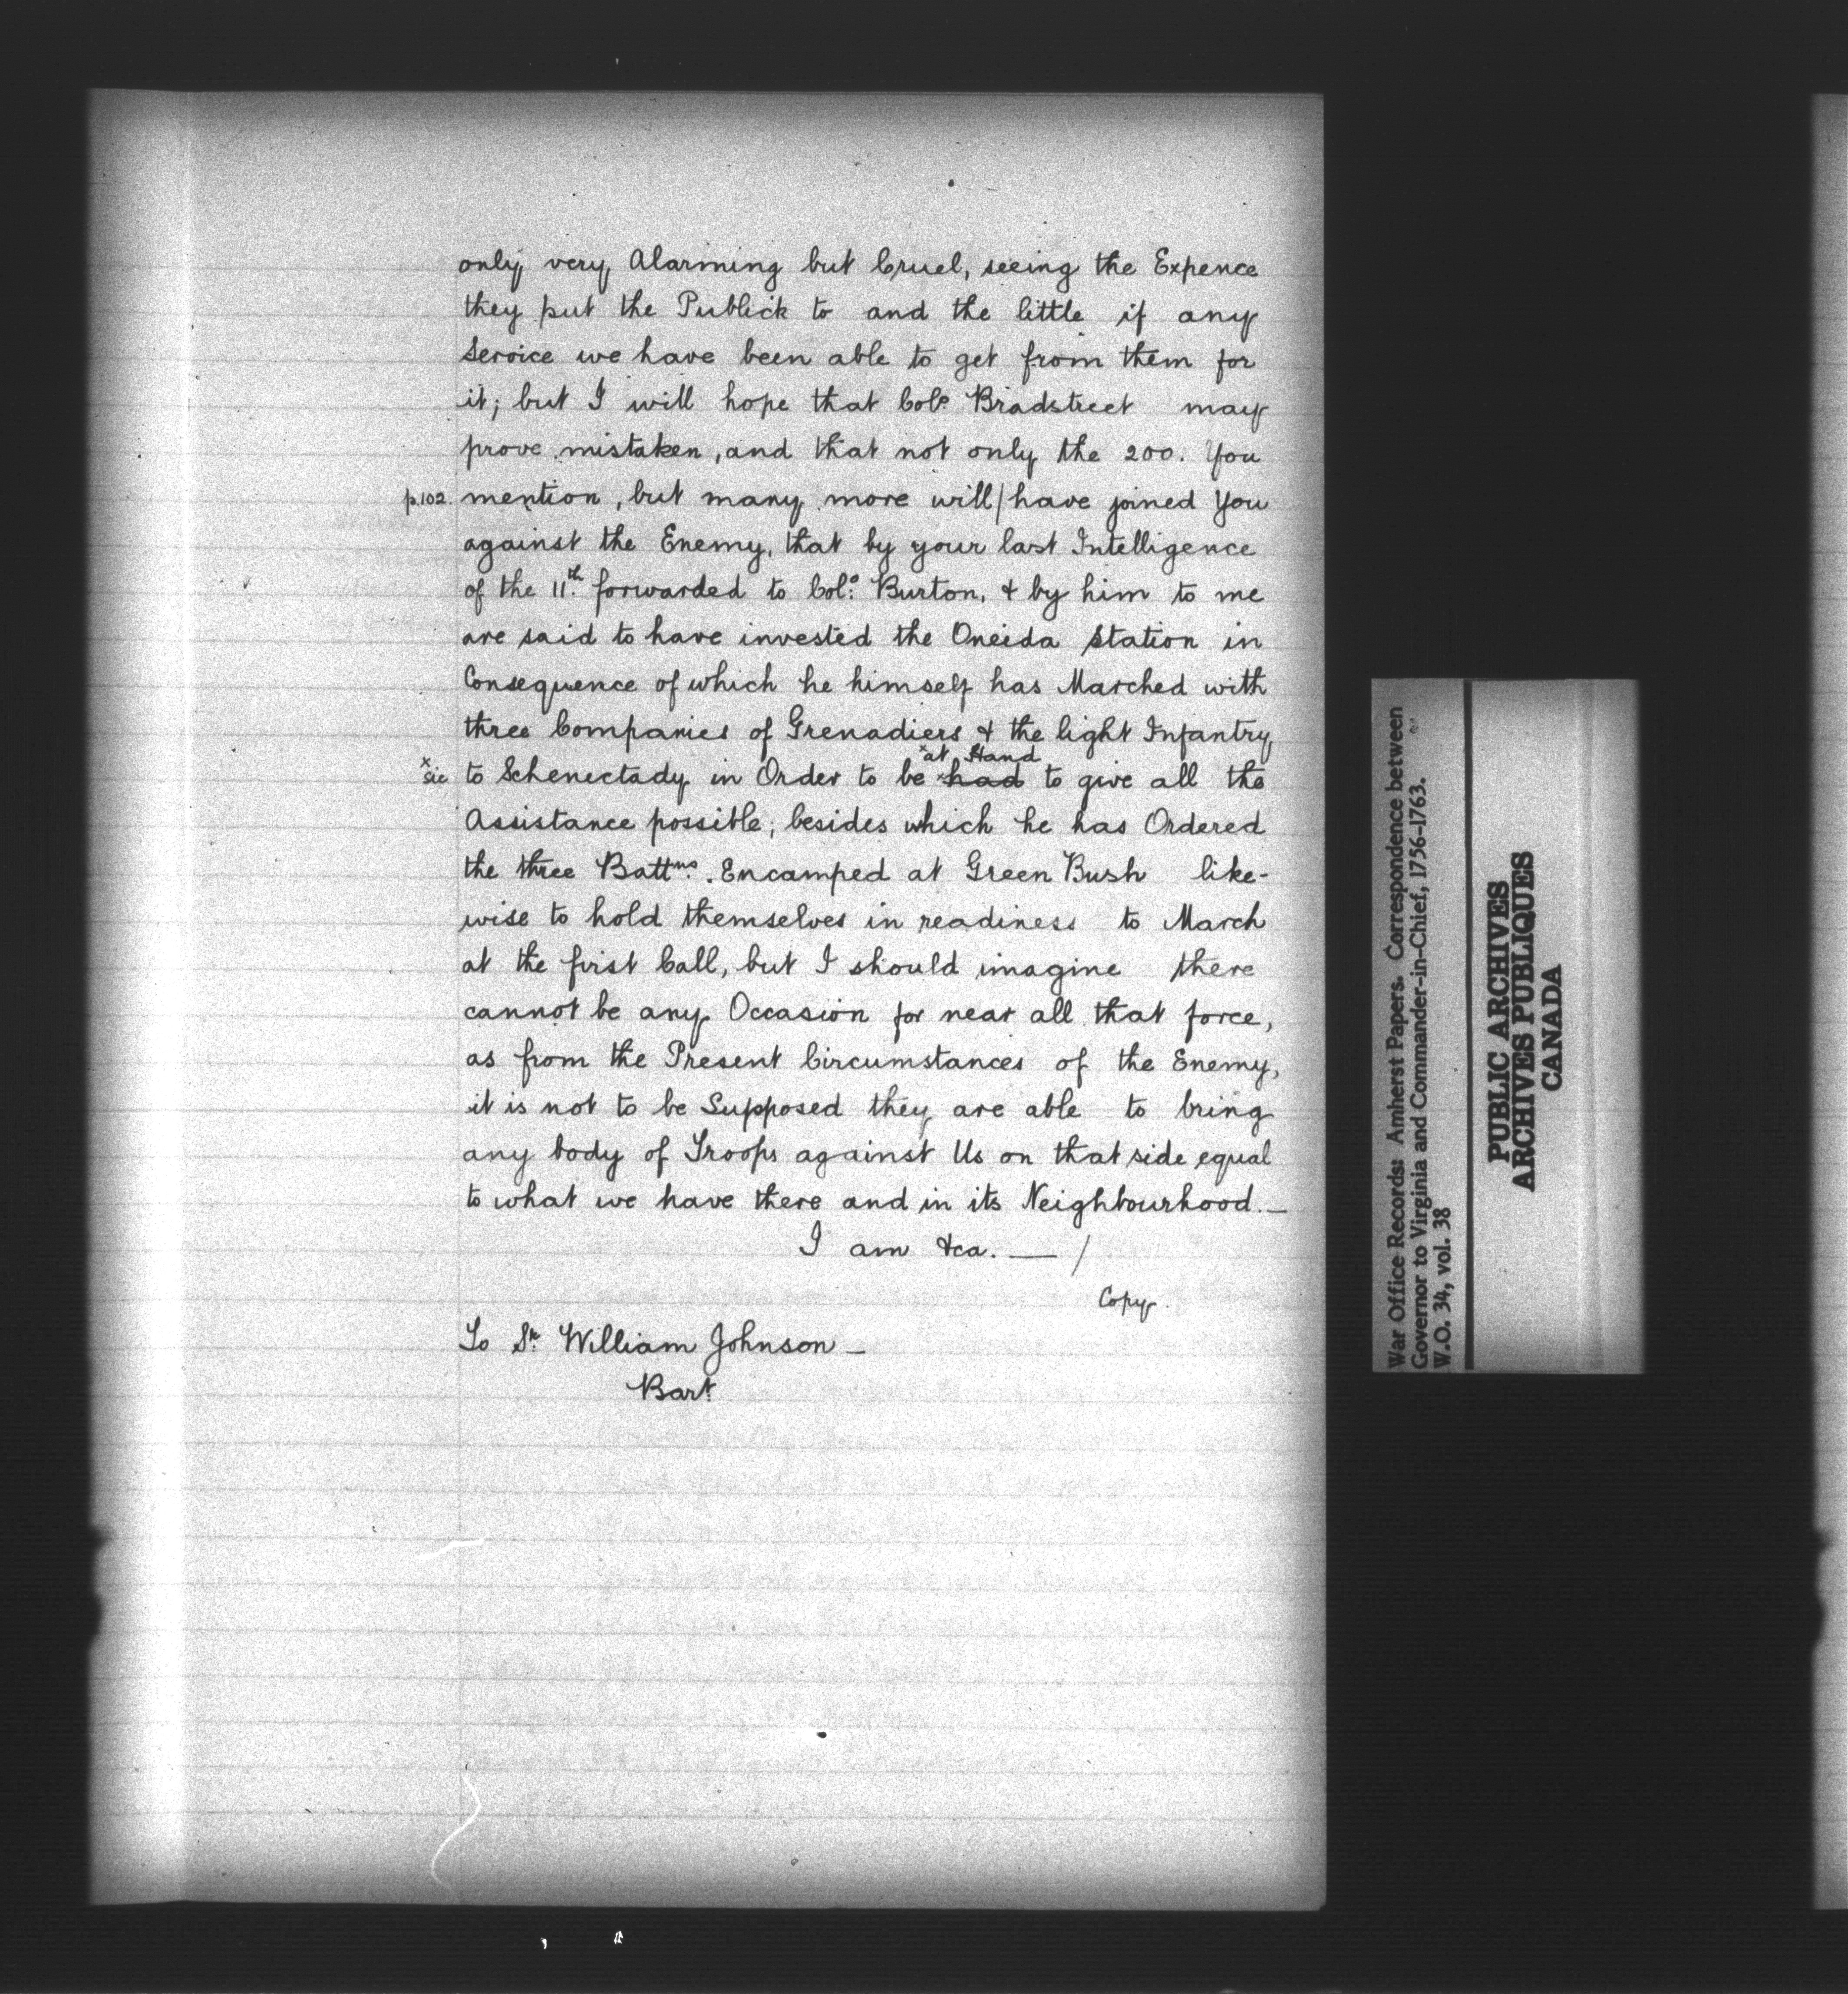 only very Alarming but Cruel, seeing the Expence
they put the Publick to and the little if any
Service we have been able to get from them for
it; but I will hope that Colo Bradstreet may
prove mistaken, and that not only the 200. You
p.102. mention, but many more will/have joined You
against the Enemy, that by your last Intelligence
of the 11th. forwarded to Colo: Burton, & by him to me
are said to have invested the Oneida Station in
Consequence of which he himself has Marched with
three Companies of Grenadiers & the light Infantry
x at Hand
x sic to Schenectady in Order to be had to give all the
Assistance possible; besides which he has Ordered
the three Battns. Encamped at Green Bush like-
wise to hold themselves in readiness to March
at the first Call, but I should imagine there
cannot be any Occasion for near all that force,
as from the Present Circumstances of the Enemy,
it is not to be Supposed they are able to bring
any body of Troops against Us on that side equal
to what we have there and in its Neighbourhood.—
I am &ca. — /
Copy.
To Sr. William Johnson —
Bart
War Office Records: Amherst Papers. Correspondence between
Governor to Virginia and Commander-in-Chief, 1756-1763.
W.O. 34, vol. 38
PUBLIC ARCHIVES
ARCHIVES PUBLIQUES
CANADA